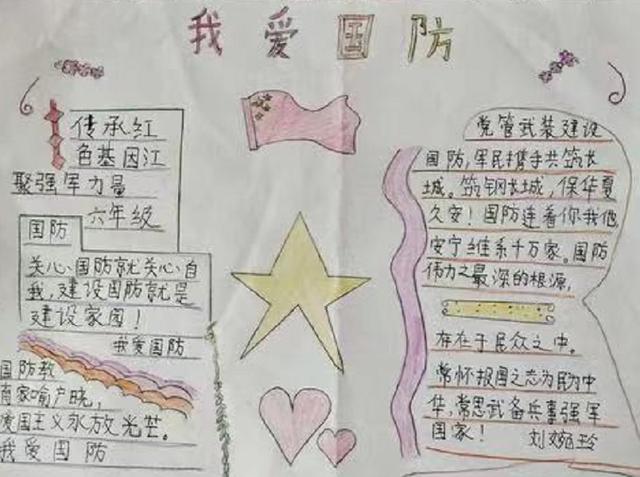 我爱国防
传承红
色基因江
聚强军力量
六年级
国防
关心国防就关心自
我,建设国防就是
建设家园!
我爱国防
国防教
商家喻户晓,
爱国主义永放光芒。
我爱国防
党管武装建设
国防,军民携手共筑长
城。筑钢长城,保华夏
久安!国防连着你我他,
安宁维系千万家。国防
伟力之最深的根源,
存在于民众之中。
常怀报国之志为中
华,常思武备兵事强军
国家!
刘婉玲